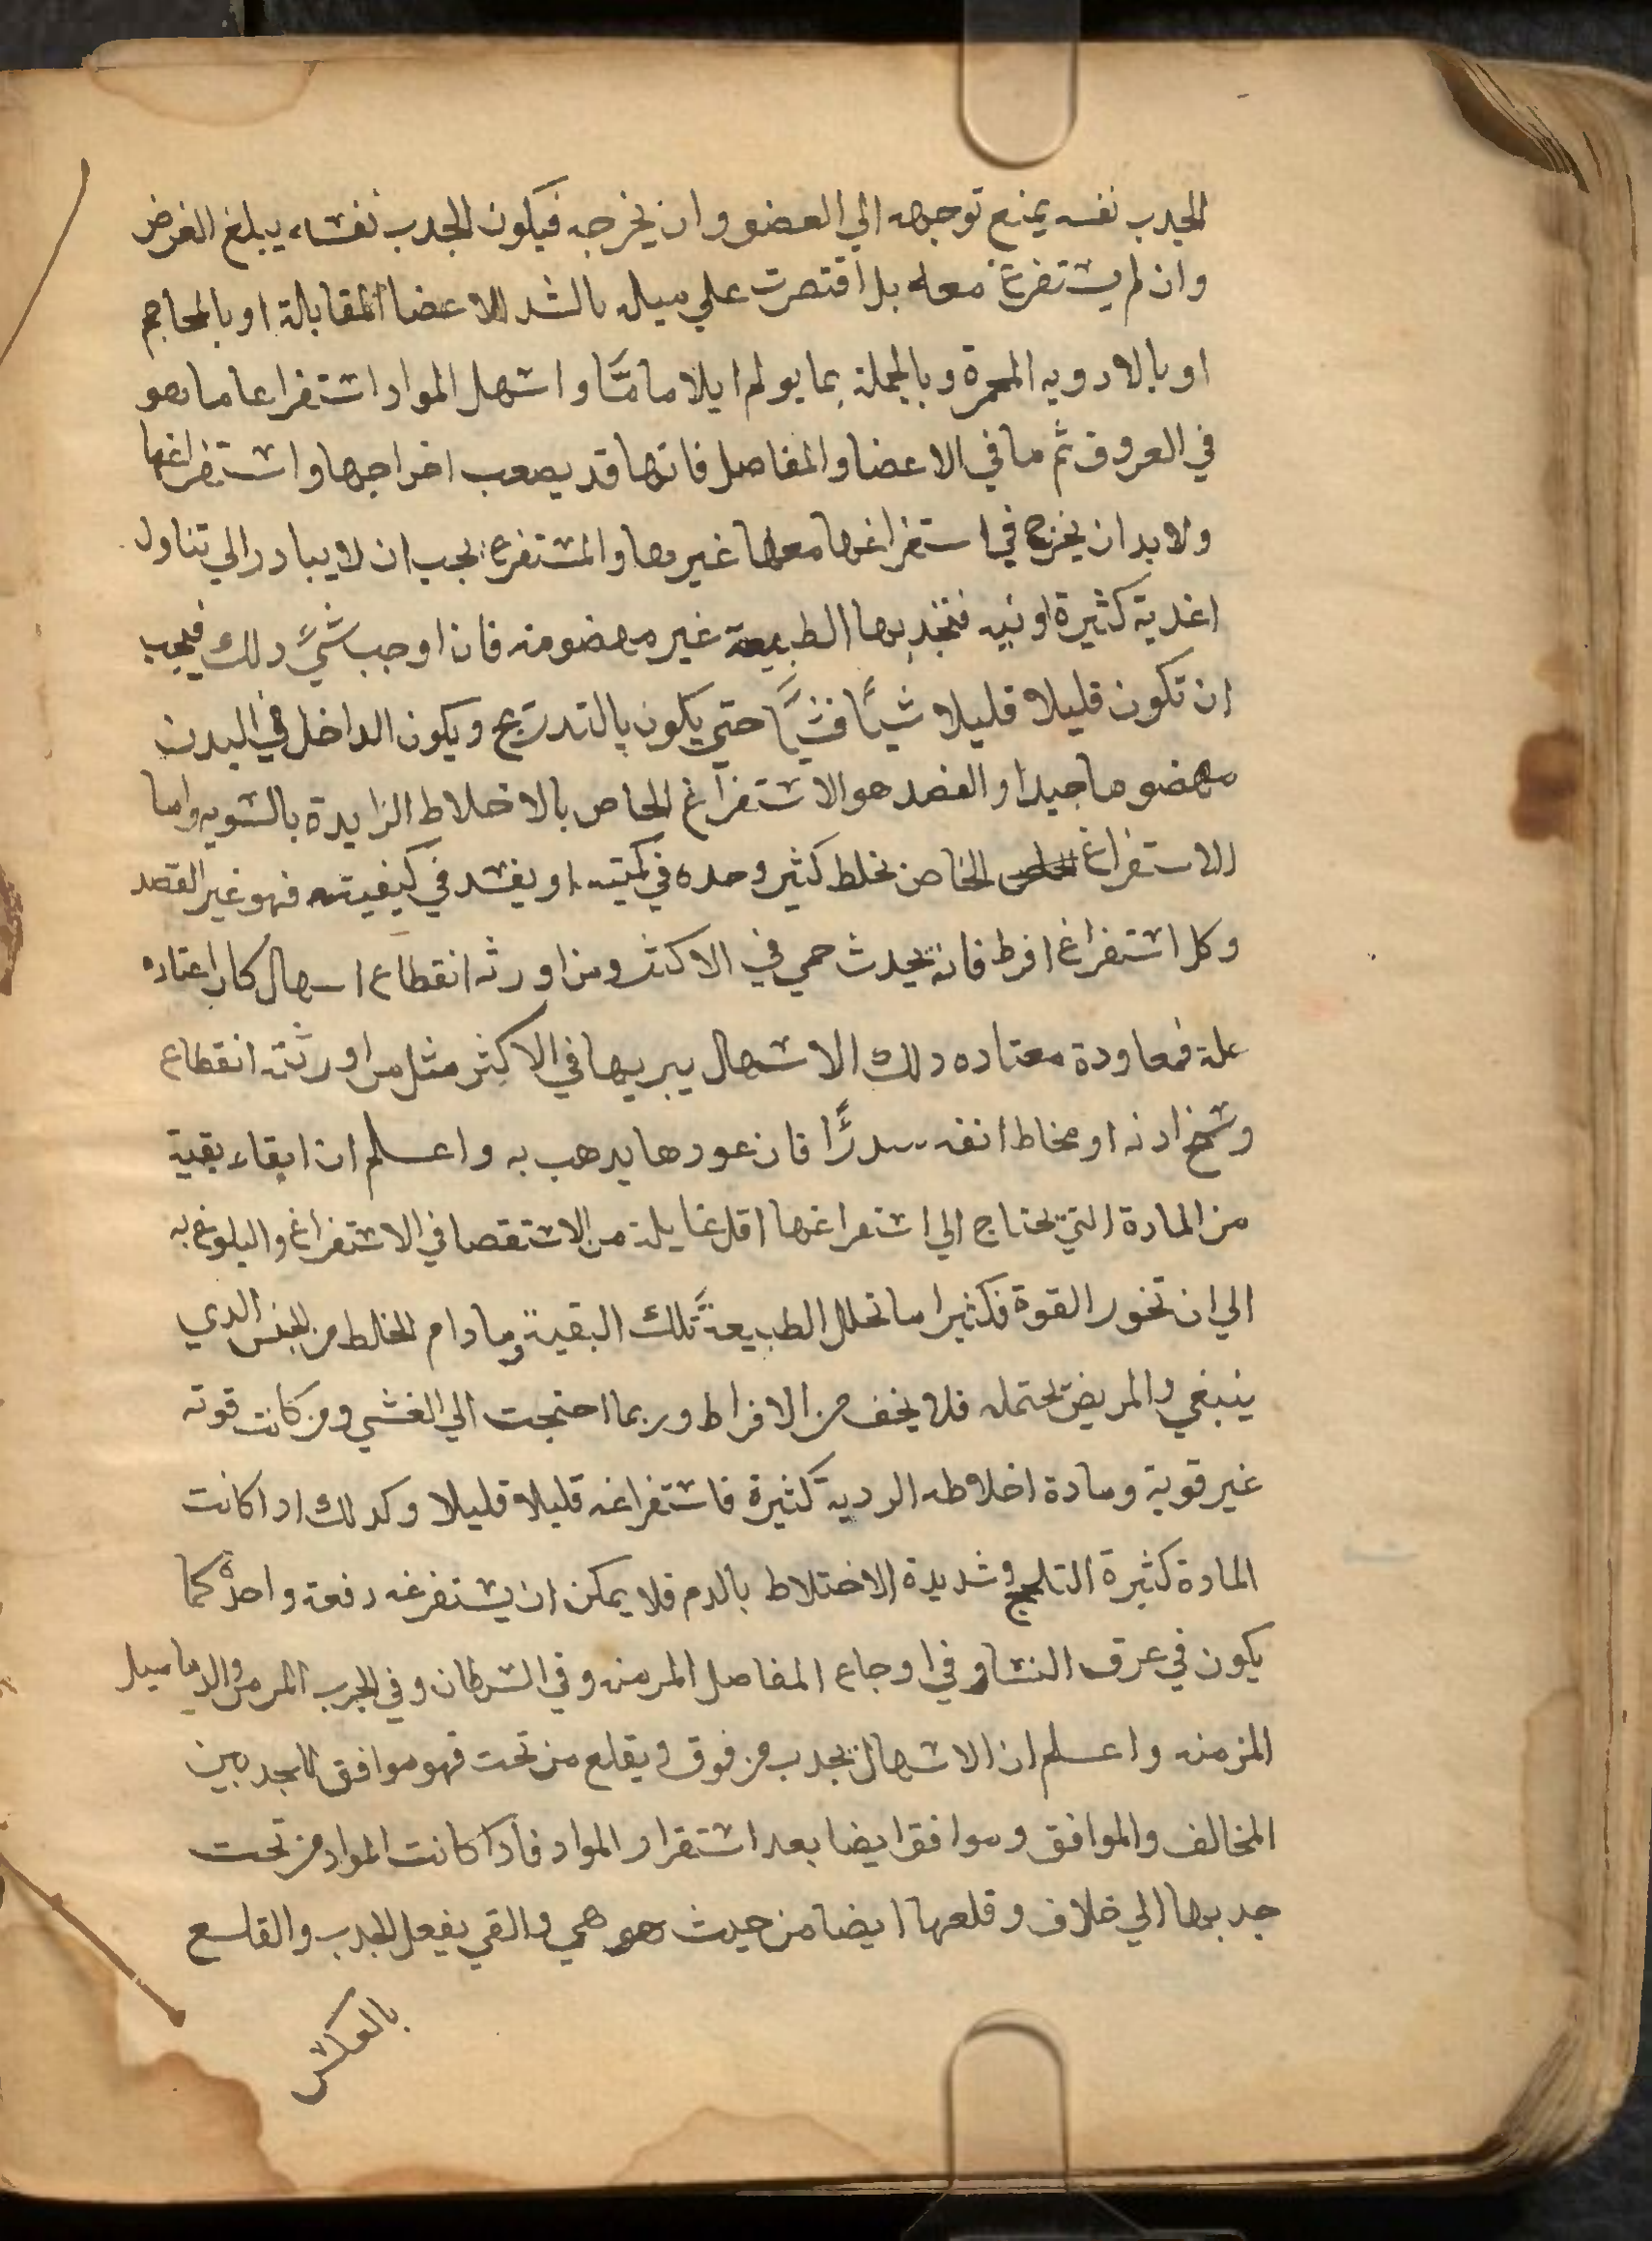 الجدب نفسه يمنع توجهه الي العضو وان يخرجه فيكون الجدب نفساء يبلغ الغرض
وان لم يستفرغ معه بل اقتصرت علي ميله بالشد للاعضا المقابلة او بالمحاجم
او بالادويه المحمرة وبالجملة بما يولم ايلاما مّا واسهل المواد استفراعا ما هو
في العروق ثم ما في الاعضا والمفاصل فانها قد يصعب اخراجها واستفراغها
ولا بد ان يخرج في استفراغها معها غيرها والمستفرغ يجب ان لا يبادر الي تناول
اغدية كثيرة او نيه فتجدبها الطبيعة غير مهضومه فان اوجب شيً دلك فيجب
ان تكون قليلا قليلا شيًا فشيًا حتي يكون بالتدريج ويكون الداخل في البدن
مهضوما جيدا والفصد هو الاستفراغ الخاص بالاخلاط الزايدة بالسويه واما
الاستفراغ الخاص بخلط كثير وحده في كميته او يفسد في كيفيته فهو غير الفصد
وكل استفراغ افرط فانه يحدث حمي في الاكثر ومن اورثه انقطاع اسهال كان اعتاده
علة فمعاودة معتاده دلك الاسهال يبريها في الاكثر مثل من اورثته انقطاع
وسخ ادنه او مخاط انفه سدرًا فان عودها يدهب به واعلم ان ابقاء بقية
من المادة التي تحتاج الي استفراغها اقل غايلة من الاستقصا في الاستفراغ والبلوغ به
الي ان تخور القوة فكثيرا ما تحلل الطبيعة تلك البقية وما دام الخلط من الجنس الدي
ينبغي والمريض يحتمله فلا يخف من الافراط وربما احتجت الي الغشي ومن كانت قوته
غير قوية ومادة اخلاطه الردية كثيرة فاستفراغه قليلا قليلا وكدلك ادا كانت
المادة كثيرة التلحج وشديدة الاختلاط بالدم فلا يمكن ان يستفرغه دفعة واحدة كما
يكون في عرق النسا وفي اوجاع المفاصل المزمنه وفي السرطان وفي الجرب المزمن والدماميل
المزمنه واعلم ان الاسهال يجدب من فوق ويقلع من تحت فهو موافق للجدبين
المخالف والموافق وموافق ايضا بعد استقرار المواد فادا كانت المواد من تحت
جدبها الي خلاف وقلعها ايضا من حيث هو هي والقي يفعل الجدب والقلع
بالعكس